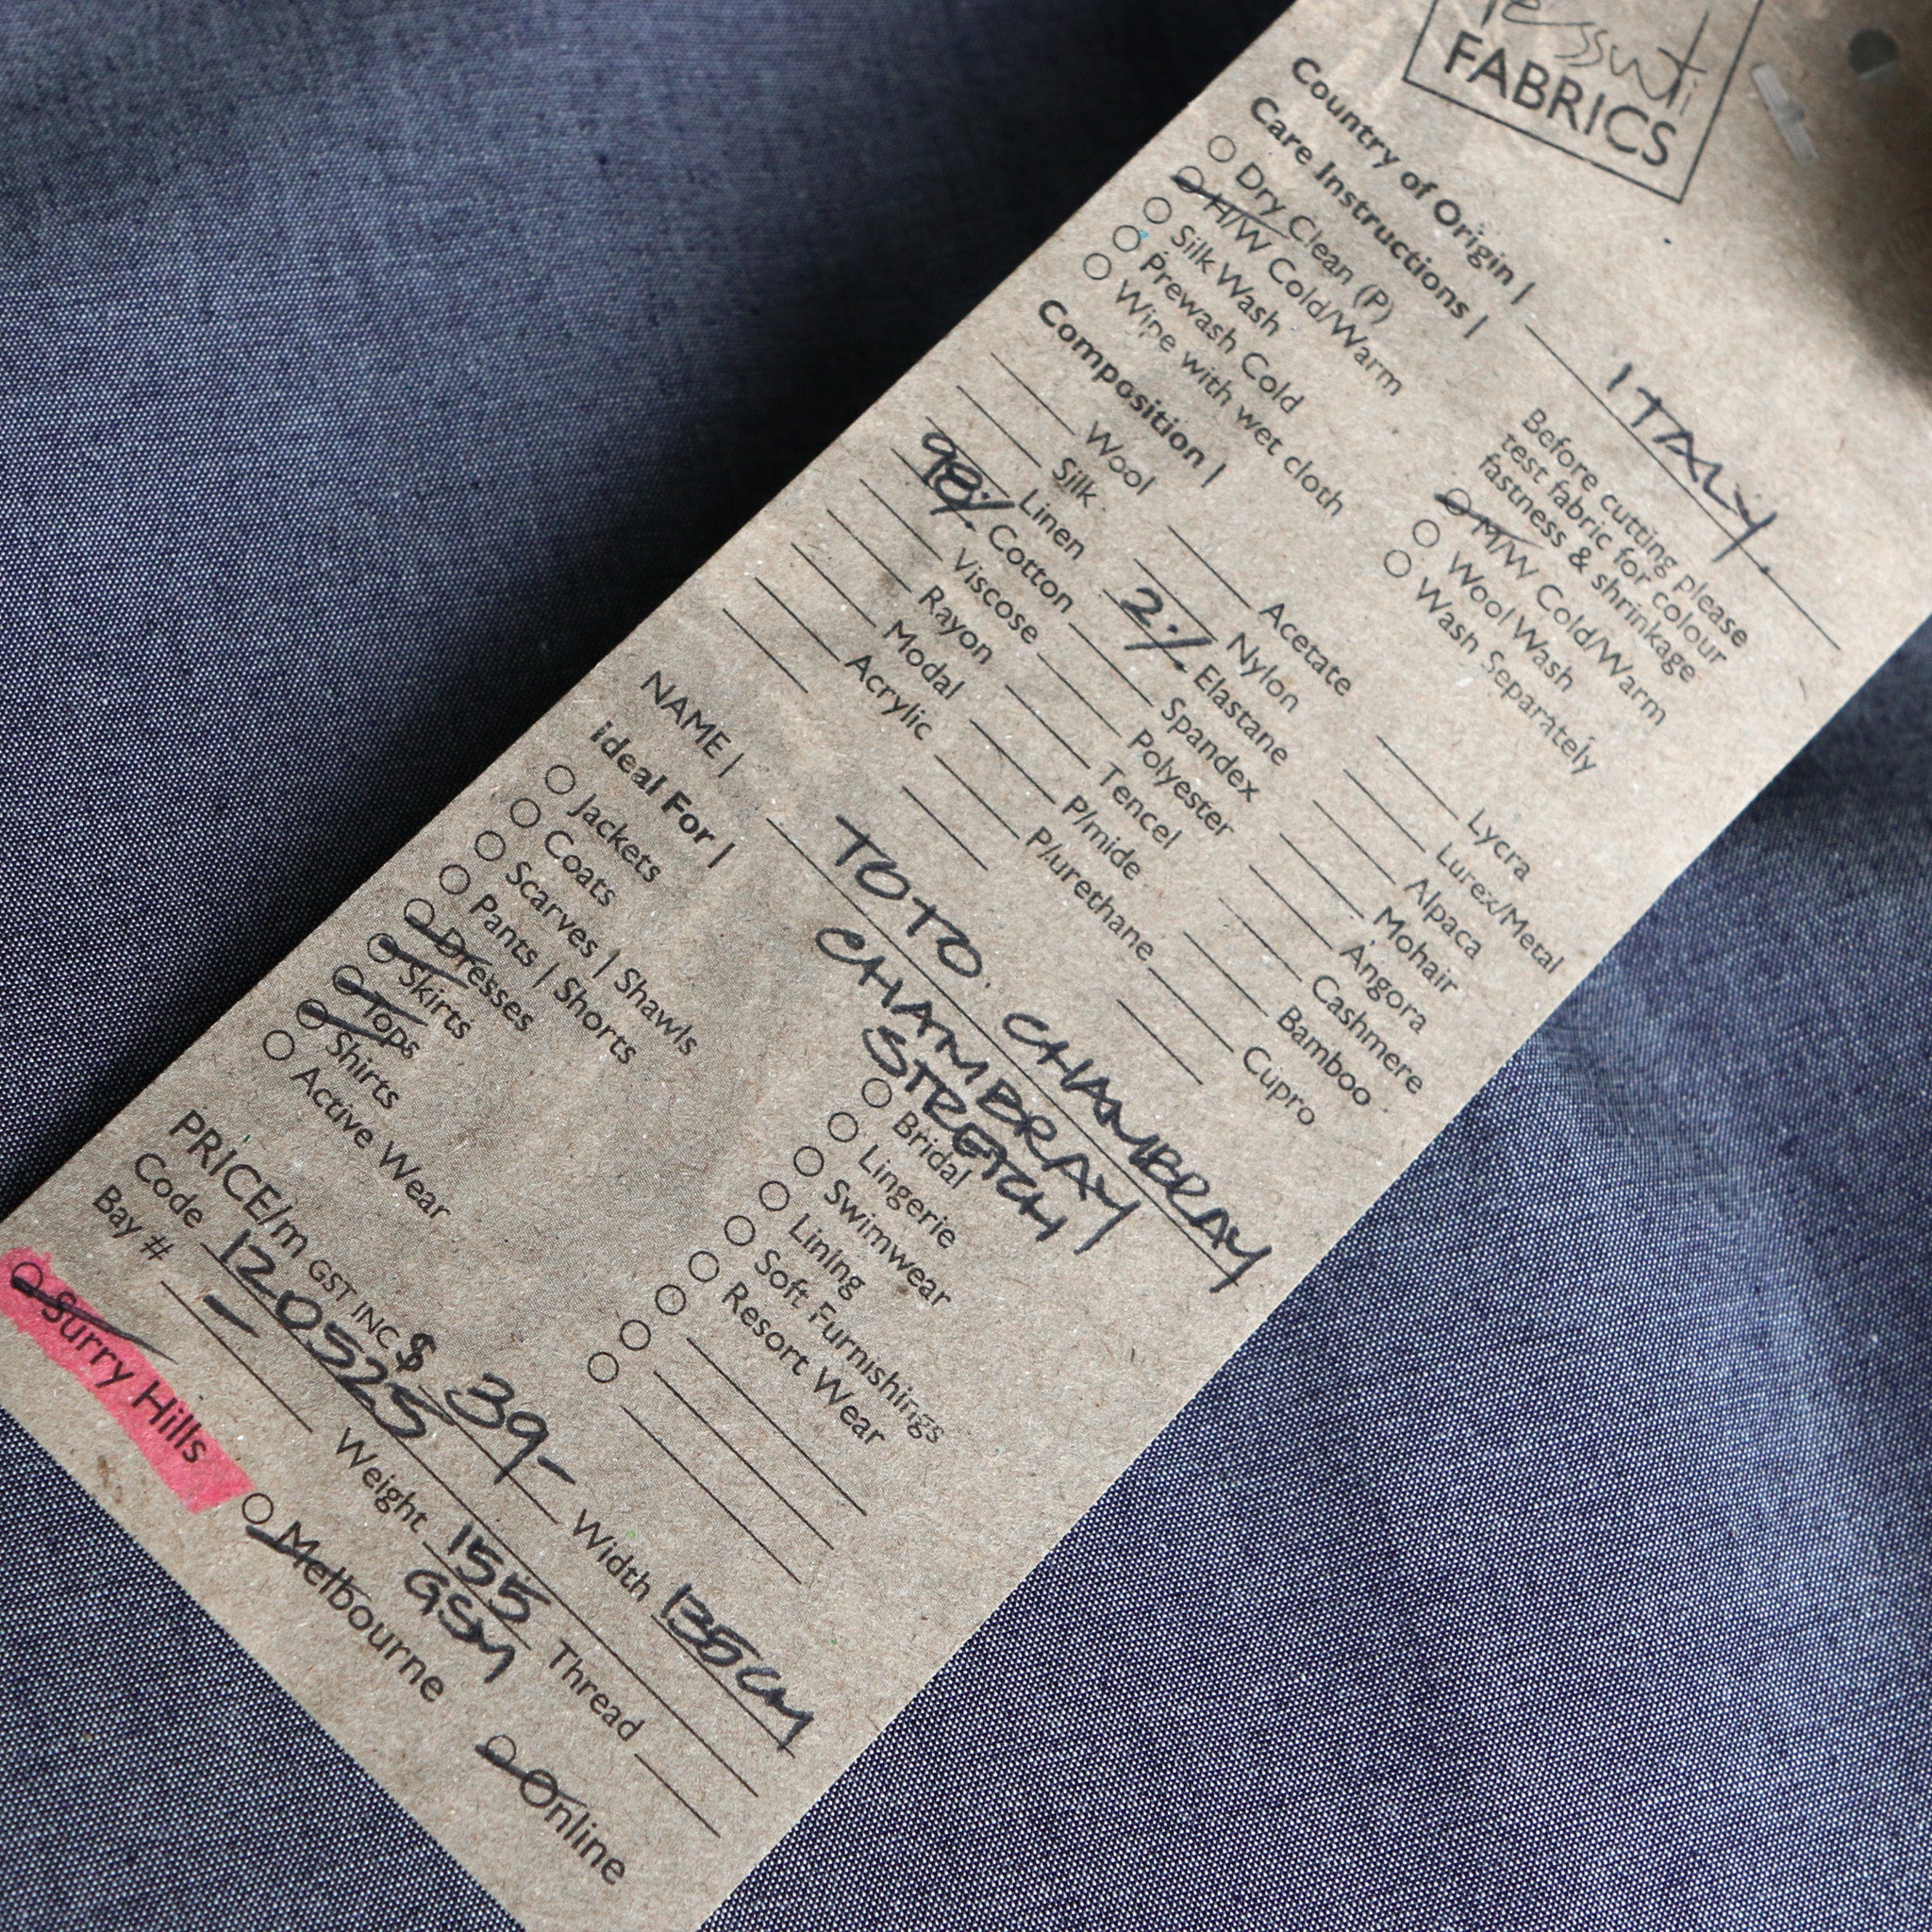 Tessuti
FABRICS
Country of Origin | ITALY.
Care Instructions |
Before cutting please
test fabric for colour
fastness & shrinkage
Dry Clean (P)
H/W Cold/Warm
Silk Wash
Prewash Cold
Wipe with wet cloth
M/W Cold/Warm
Wool Wash
Wash Separately
Composition |
Wool
Silk
Linen
98% Cotton
Viscose
Rayon
Modal
Acrylic
Acetate
Nylon
2% Elastane
Spandex
Polyester
Tencel
P/mide
P/urethane
Lycra
Lurex/Metal
Alpaca
Mohair
Angora
Cashmere
Bamboo
Cupro
NAME | TOTO. CHAMBRAY
CHAMBRAY
STRETCH
ideal For |
Jackets
Coats
Scarves | Shawls
Pants | Shorts
Dresses
Skirts
Tops
Shirts
Active Wear
Bridal
Lingerie
Swimwear
Lining
Soft Furnishings
Resort Wear
PRICE/m GST INC $ 39- Width 135CM
Code 120525 Weight 155 GSM Thread
Bay # –
Surry Hills Melbourne Online